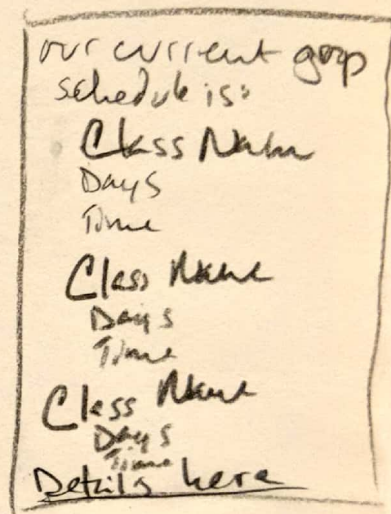 our current group
schedule is:
Class Name
Days
Time
Class Name
Days
Time
Class Name
Days
Time
Details here